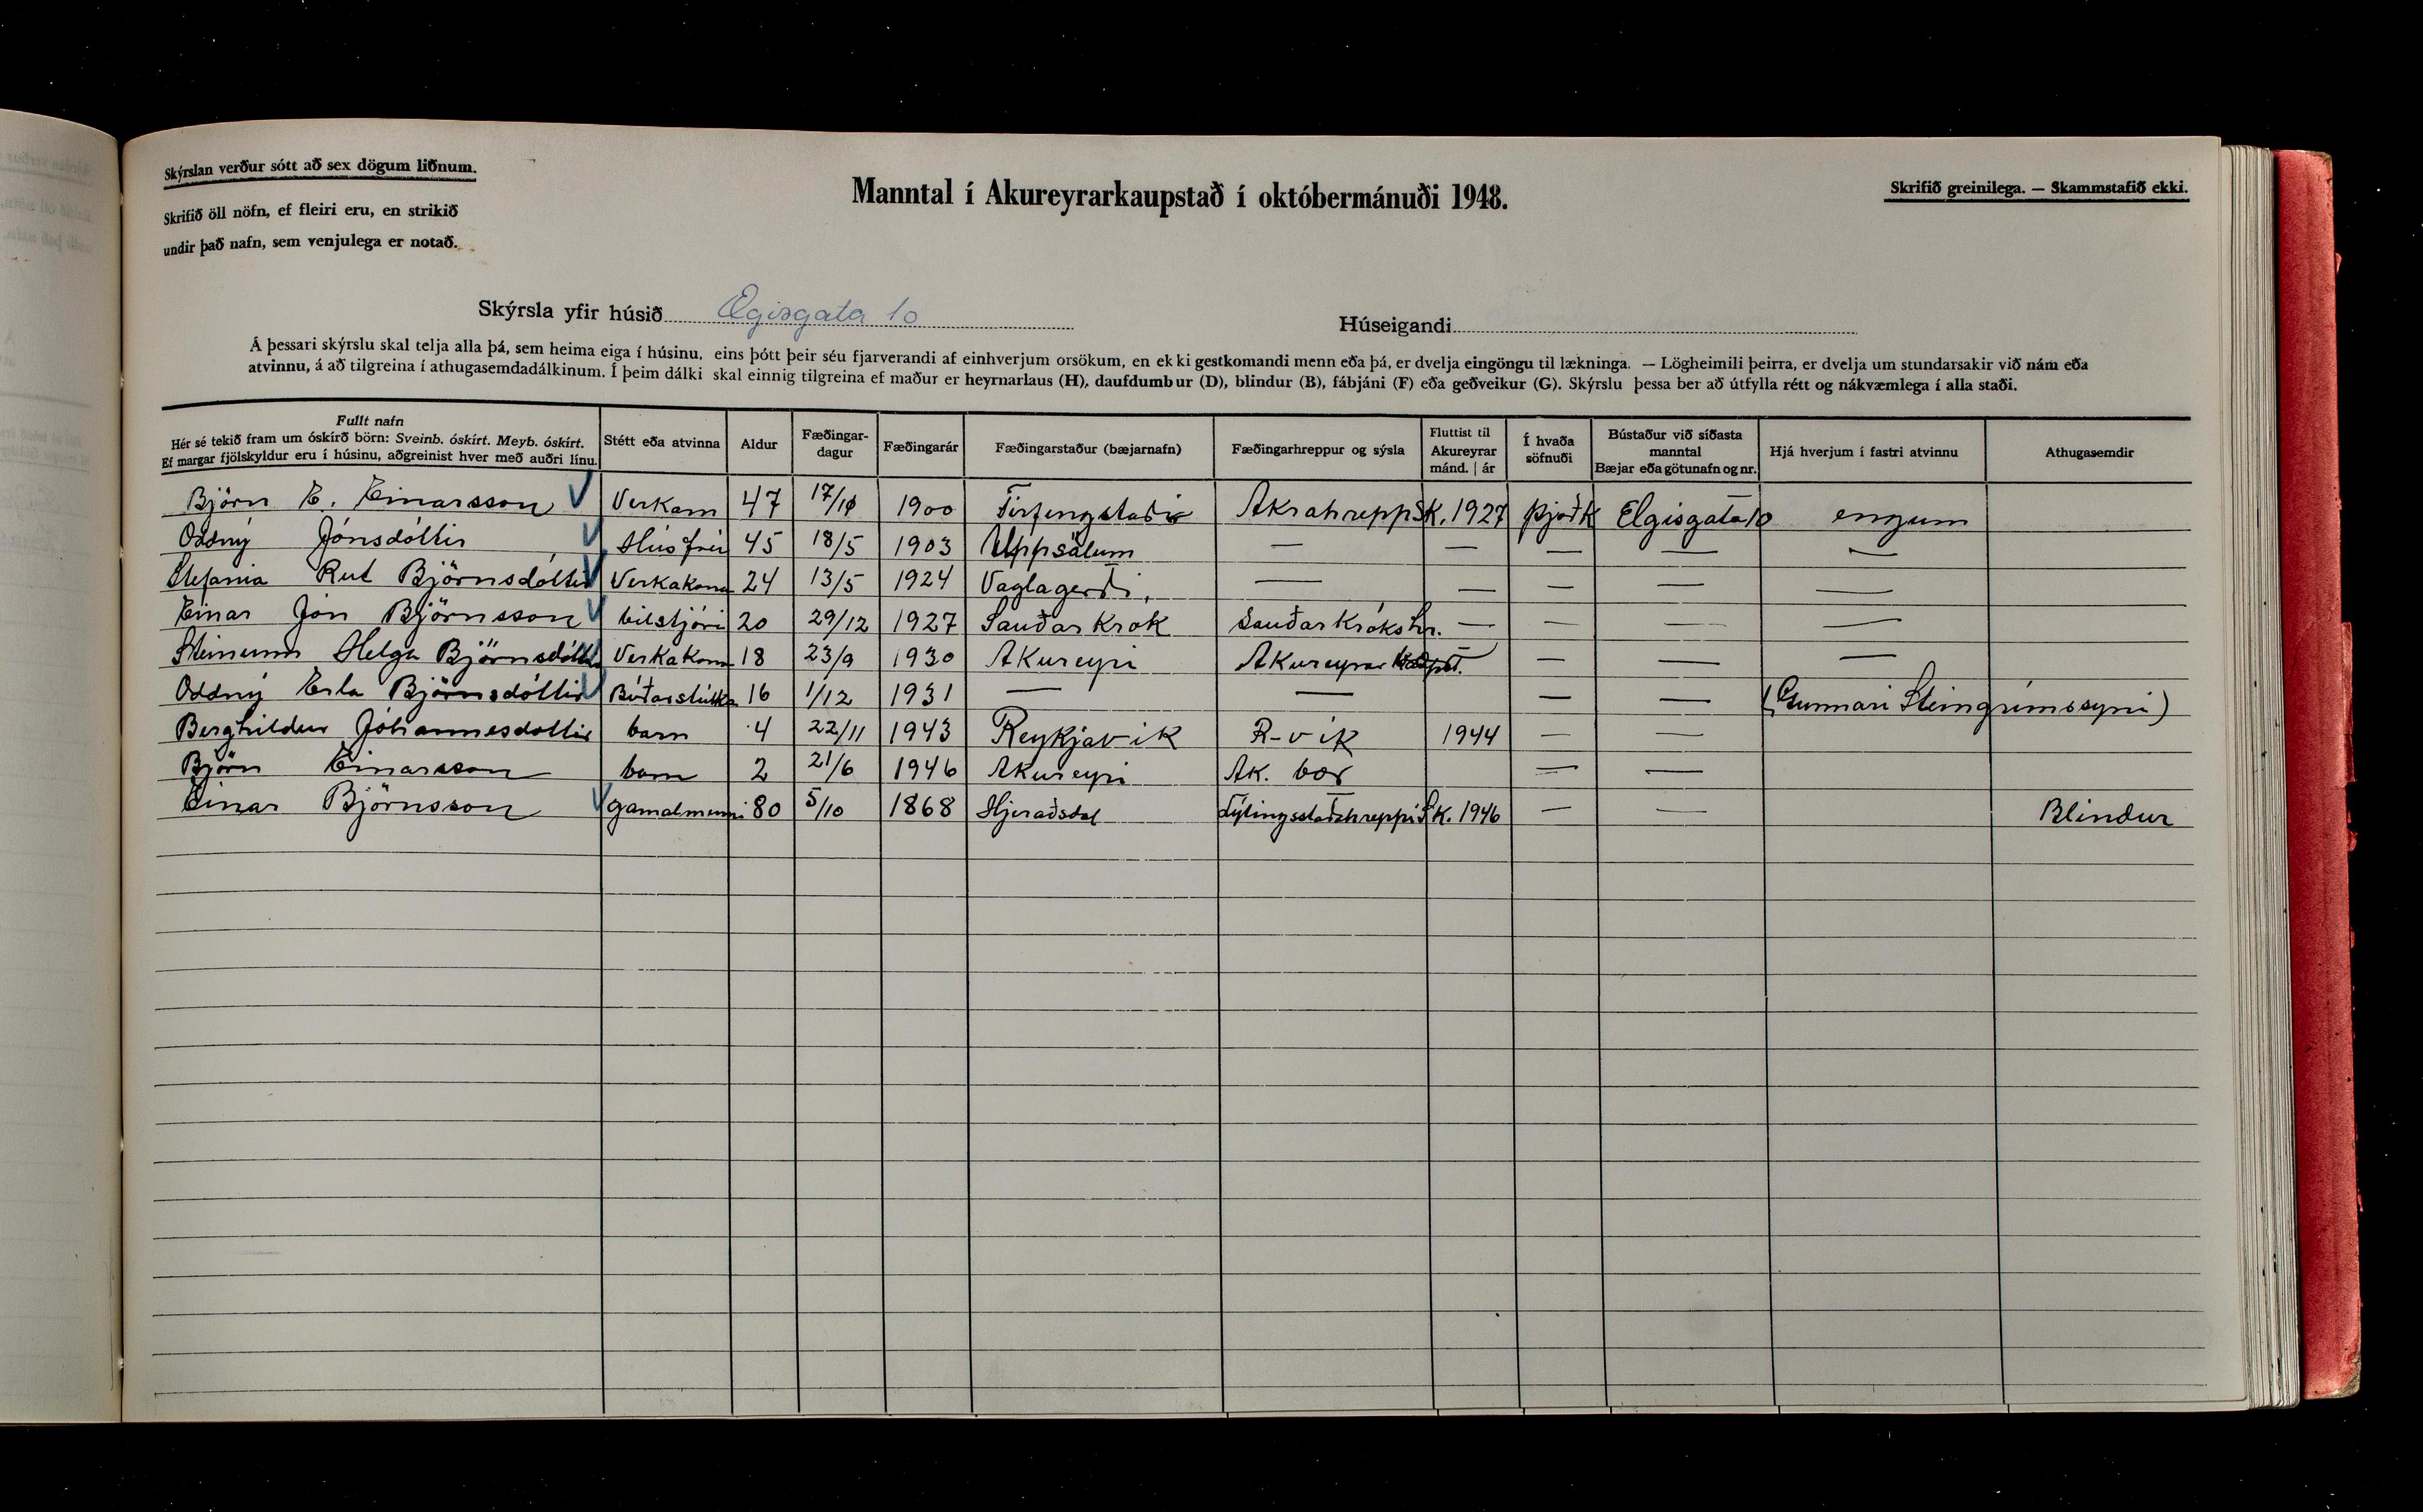 Skýrslan verður sótt að sex dögum liðnum.
Skrifið öll nöfn, ef fleiri eru, en strikið
undir það nafn, sem venjulega er notað.
Manntal í Akureyrarkaupstað í októbermánuði 1948.
Skrifið greinilega. — Skammstafið ekki.
Skýrsla yfir húsið Ægisgata 10
Húseigandi
Á þessari skýrslu skal telja alla þá, sem heima eiga í húsinu, eins þótt þeir séu fjarverandi af einhverjum orsökum, en ekki gestkomandi menn eða þá, er dvelja eingöngu til lækninga. — Lögheimili þeirra, er dvelja um stundarsakir við nám eða
atvinnu, á að tilgreina í athugasemdadálkinum. Í þeim dálki skal einnig tilgreina ef maður er heyrnarlaus (H), daufdumbur (D), blindur (B), fábjáni (F) eða geðveikur (G). Skýrslu þessa ber að útfylla rétt og nákvæmlega í alla staði.
Fullt nafn
Hér sé tekið fram um óskírð börn: Sveinb. óskírt. Meyb. óskírt.
Ef margar fjölskyldur eru í húsinu, aðgreinist hver með auðri línu.
Stétt eða atvinna
Aldur
Fæðingar-
dagur
Fæðingarár
Fæðingarstaður (bæjarnafn)
Fæðingarhreppur og sýsla
Fluttist til
Akureyrar
mánd. | ár
Í hvaða
söfnuði
Bústaður við síðasta
manntal
Bæjar eða götunafn og nr.
Hjá hverjum í fastri atvinnu
Athugasemdir
Björn E. Einarsson Verkam 47 17/10 1900 Tirfingstaðir Akrahrepp Sk. 1927 Þjóðk Elgisgata 10 engum
Oddný Jónsdóttir Húsfrú 45 18/5 1903 Uppsölum — — — — —
Stefania Rut Björnsdóttir Verkakona 24 13/5 1924 Vaglagerði, — — — — —
Einar Jón Björnsson bílstjóri 20 29/12 1927 Sauðarkrok Sauðarkróks hr. — — — —
Steinunn Helga Björnsdóttir Verkakona 18 23/9 1930 Akureyri Akureyrar — — — —
Oddný Erla Björnsdóttir Búðarstúlka 16 1/12 1931 — — — — (Gunnari Steingrímssyni)
Berghildur Jóhannesdóttir barn 4 22/11 1943 Reykjavik R-vík 1944 — —
Björn Einarsson barn 2 21/6 1946 Akureyri Ak. bær — —
Einar Björnsson gamalmenni 80 5/10 1868 Hjeraðsdal Lýtingsstaðahreppi Sk. 1946 — — Blindur